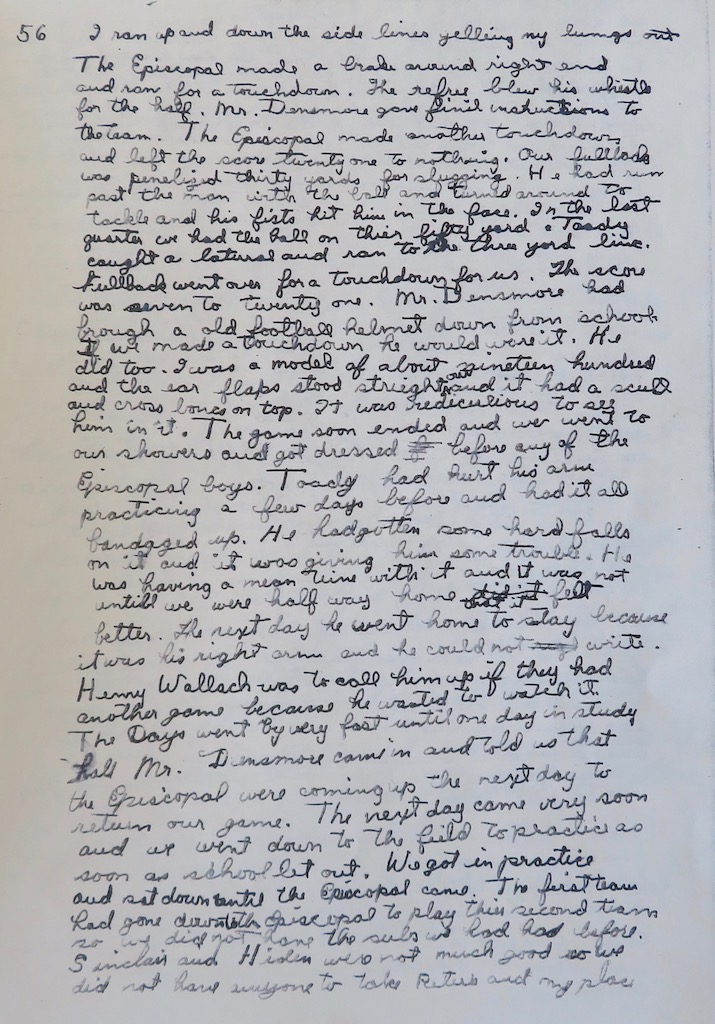 56 I ran up and down the side lines yelling my lumgs out
The Episcopal made a brake around right end
and ran for a touchdown. The refree blew his whistle
for the half. Mr. Densmore gave finil instructions to
the team. The Episcopal made another touchdown
and left the score twenty one to nothing. Our fullback
was penelized thirty yards for slugging. He had run
past the man with the ball and turned around to
tackle and his fists hit him in the face. In the last
quarter we had the ball on thier fifty yard. Toady
caught a lateral and ran to the three yord line.
Fullback went over for a touchdown for us. The score
was seven to twenty one. Mr. Densmore had
brough a old football helmet down from school.
If we made a touchdown he would were it. He
did too. I was a model of about nineteen hundred
and the ear flaps stood strieght out and it had a scull
and cross bones on top. It was rediculious to see
him in it. The game soon ended and we went to
our showers and got dressed before any of the
Episcopal boys. Toady had hurt his arm
practicing a few days before and had it all
bandaged up. He had gotten some hard falls
on it and it was giving him some trouble. He
was having a mean time with it and it was not
untill we were half way home that it felt
better. The next day he went home to stay because
it was his right arm and he could not write.
Henry Wallach was to call him up if they had
another game because he wanted to watch it.
The Days went by very fast until one day in study
hall Mr. Densmore came in and told us that
the Episcopal were coming up the next day to
return our game. The next day came very soon
and we went down to the field to practice as
soon as school let out. We got in practice
and sat down until the Episcopal came. The first team
had gone down to Episcopal to play thier second team
so we did not have the subs we had had before.
Sinclair and Hiden were not much good so we
did not have anyone to take Returs and my place